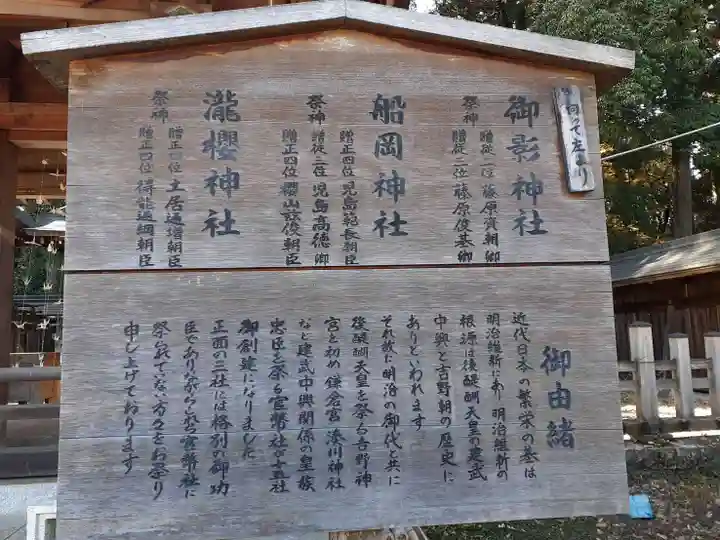 向って左より
御影神社
祭神
贈従二位 藤原資朝卿
贈従三位 藤原俊基卿
船岡神社
祭神
贈正四位 児島範長朝臣
贈従三位 児島高徳卿
贈正四位 櫻山茲俊朝臣
瀧櫻神社
祭神
贈正四位 土居通増朝臣
贈正四位 得能通綱朝臣
御由緒
近代日本の繁栄の基は
明治維新にあり 明治維新の
根源は後醍醐天皇の建武
中興と吉野朝の歴史に
ありといわれます
それ故に明治の御代と共に
後醍醐天皇を祭る吉野神
宮を初め鎌倉宮 湊川神社
など建武中興関係の皇族
忠臣を祭る官幣社が十五社
御創建になりました
正面の三社には格別の御功
臣でありながらこれら官幣社に
祭られてない方々をお祭り
申し上げております